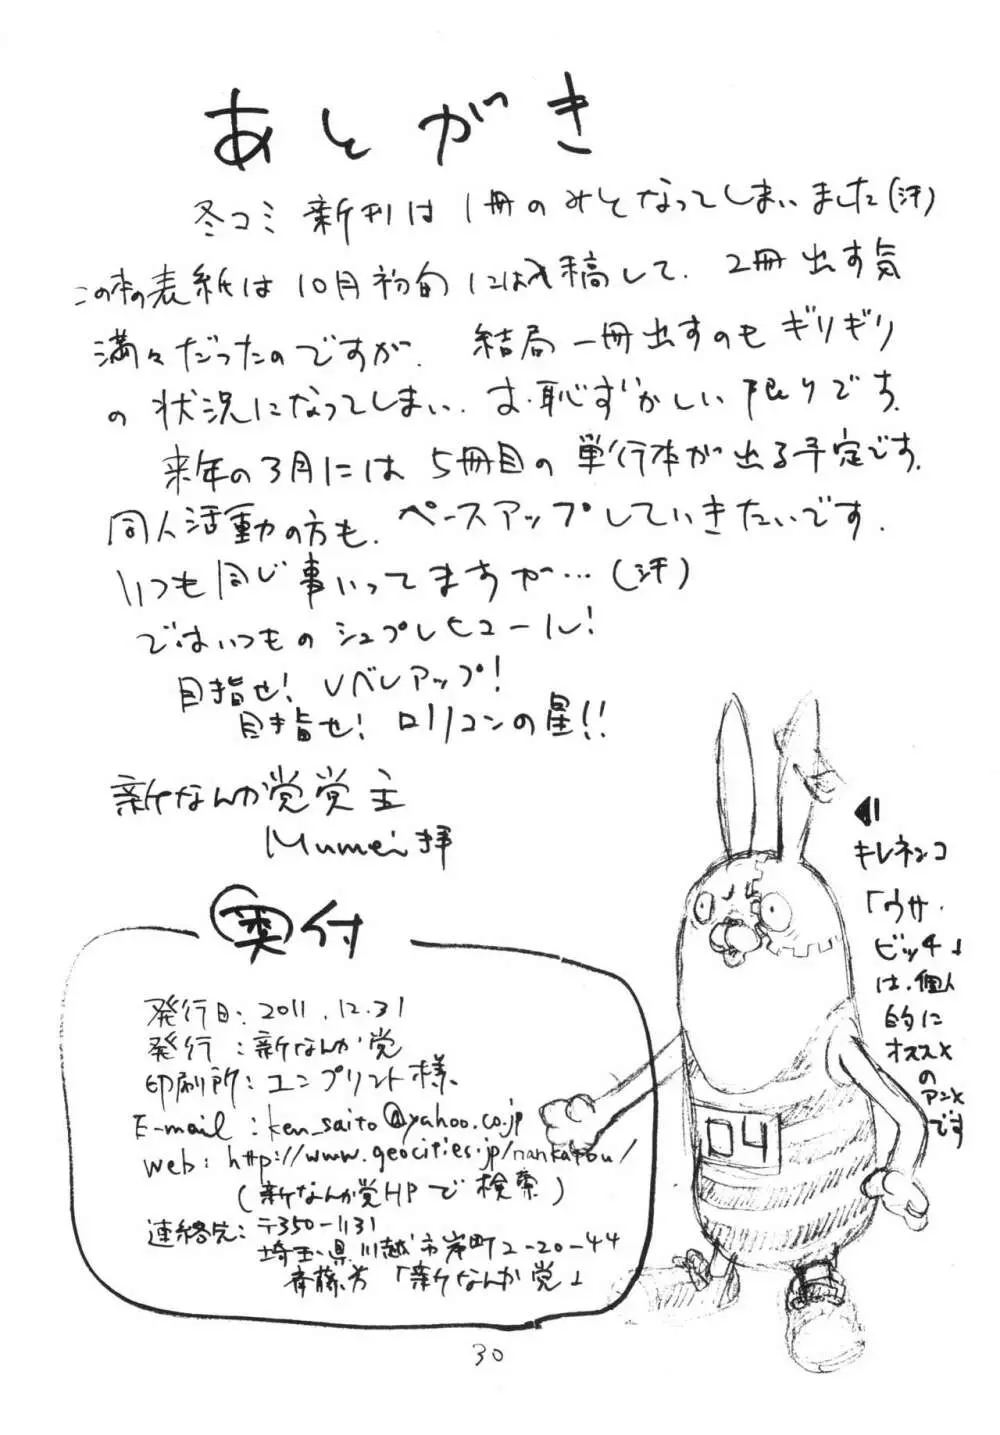 あとがき
冬コミ新刊は1冊のみとなってしまいました(汗)
この本の表紙は10月初旬には入稿して、2冊出す気
満々だったのですが、結局一冊出すのもギリギリ
の状況になってしまい、お恥ずかしい限りです。
来年の3月には5冊目の単行本が出る予定です。
同人活動の方も、ペースアップしていきたいです。
いつも同じ事いってますが…(汗)
ではいつものシュプレヒコール!
目指せ!レベルアップ!
目指せ!ロリコンの星!!
新なんか党党主
Mumei拝
キレネンコ
「ウサ・
ビッチ」
は、個人
的に
オススメ
の
アニメ
です
奥付
発行日:2011.12.31
発行:新なんか党
印刷所:ユンプリント様
E-mail:ken_saito@yahoo.co.jp
web:http://www.geocities.jp/nankatou/
(新なんか党HPで検索)
連絡先:〒350-1131
埼玉県川越市岸町2-20-44
斉藤方「新なんか党」
04
30